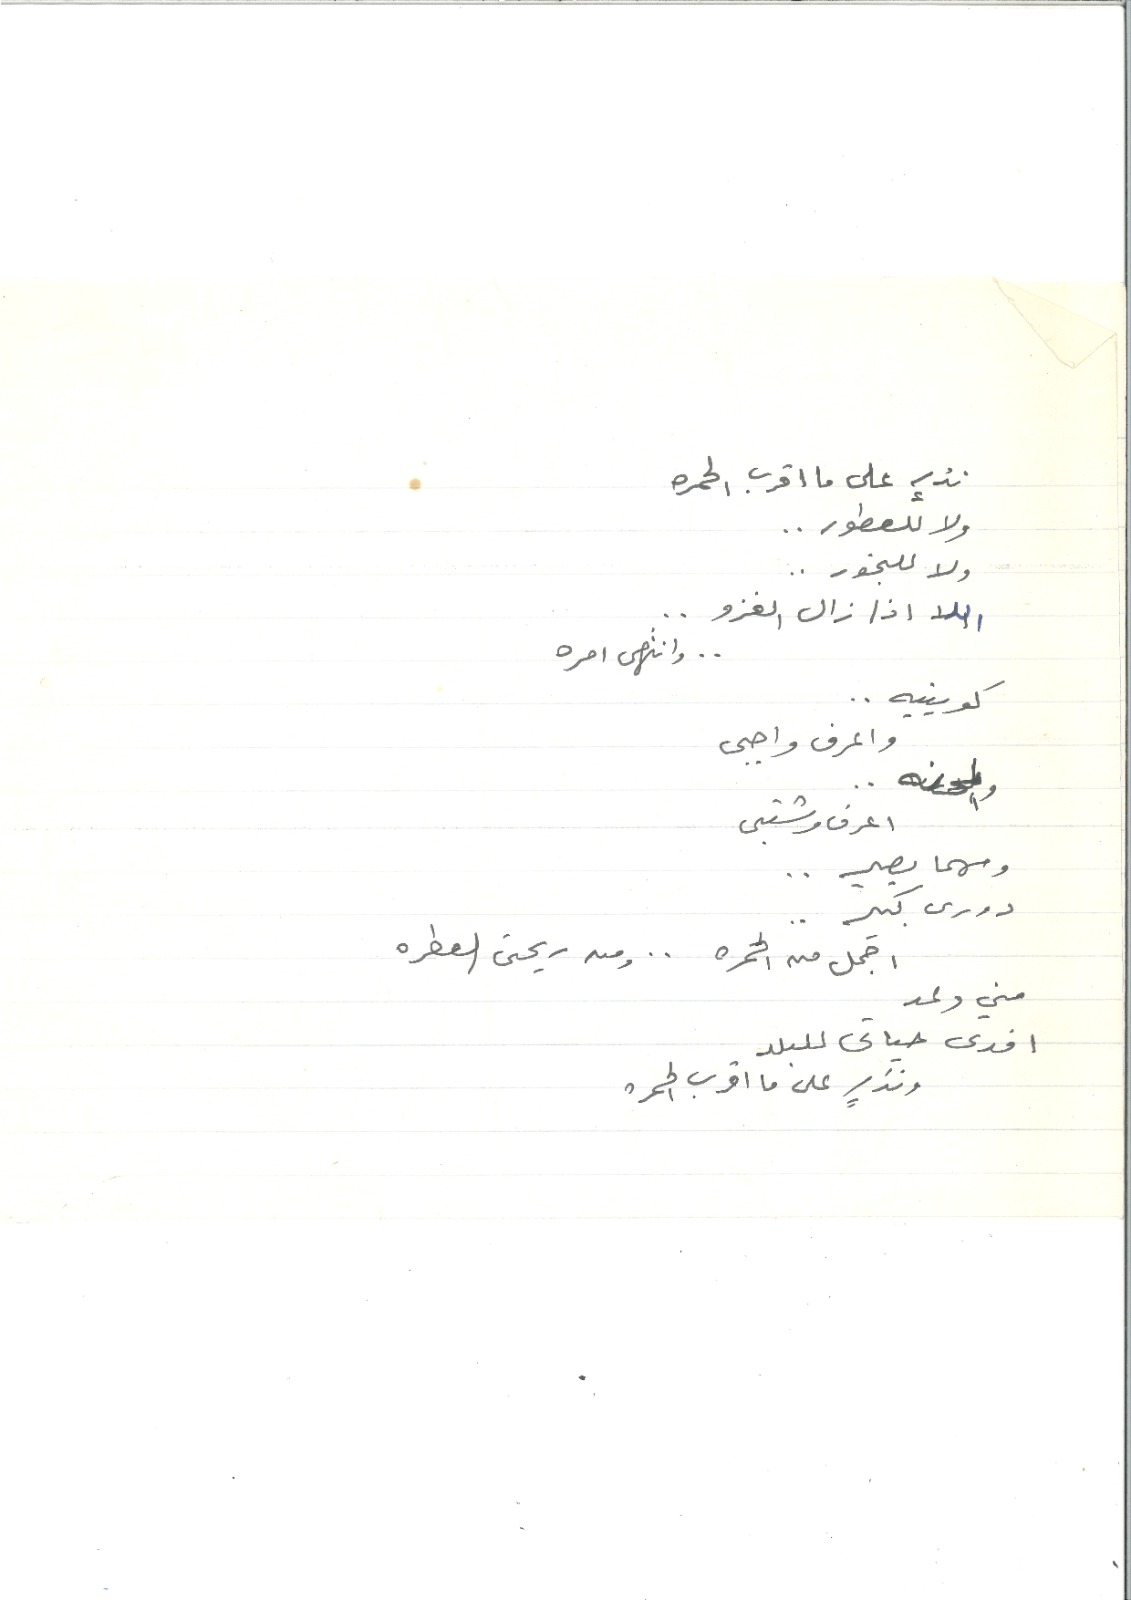 نذرٍ على ما اقرب الحمره
ولا للعطور ..
ولا للبخور ..
الا اذا زال الغزو ..
.. وانتهى امره
كويتيه ..
واعرف واجبي
والمحنه ..
اعرف وشتبي
ومهما يصير ..
دورى كبير ..
اجمل من الحمره .. ومن ريحتى العطره
مني وعد
افدى حياتى للبلد
ونذرٍ على ما اقرب الحمره